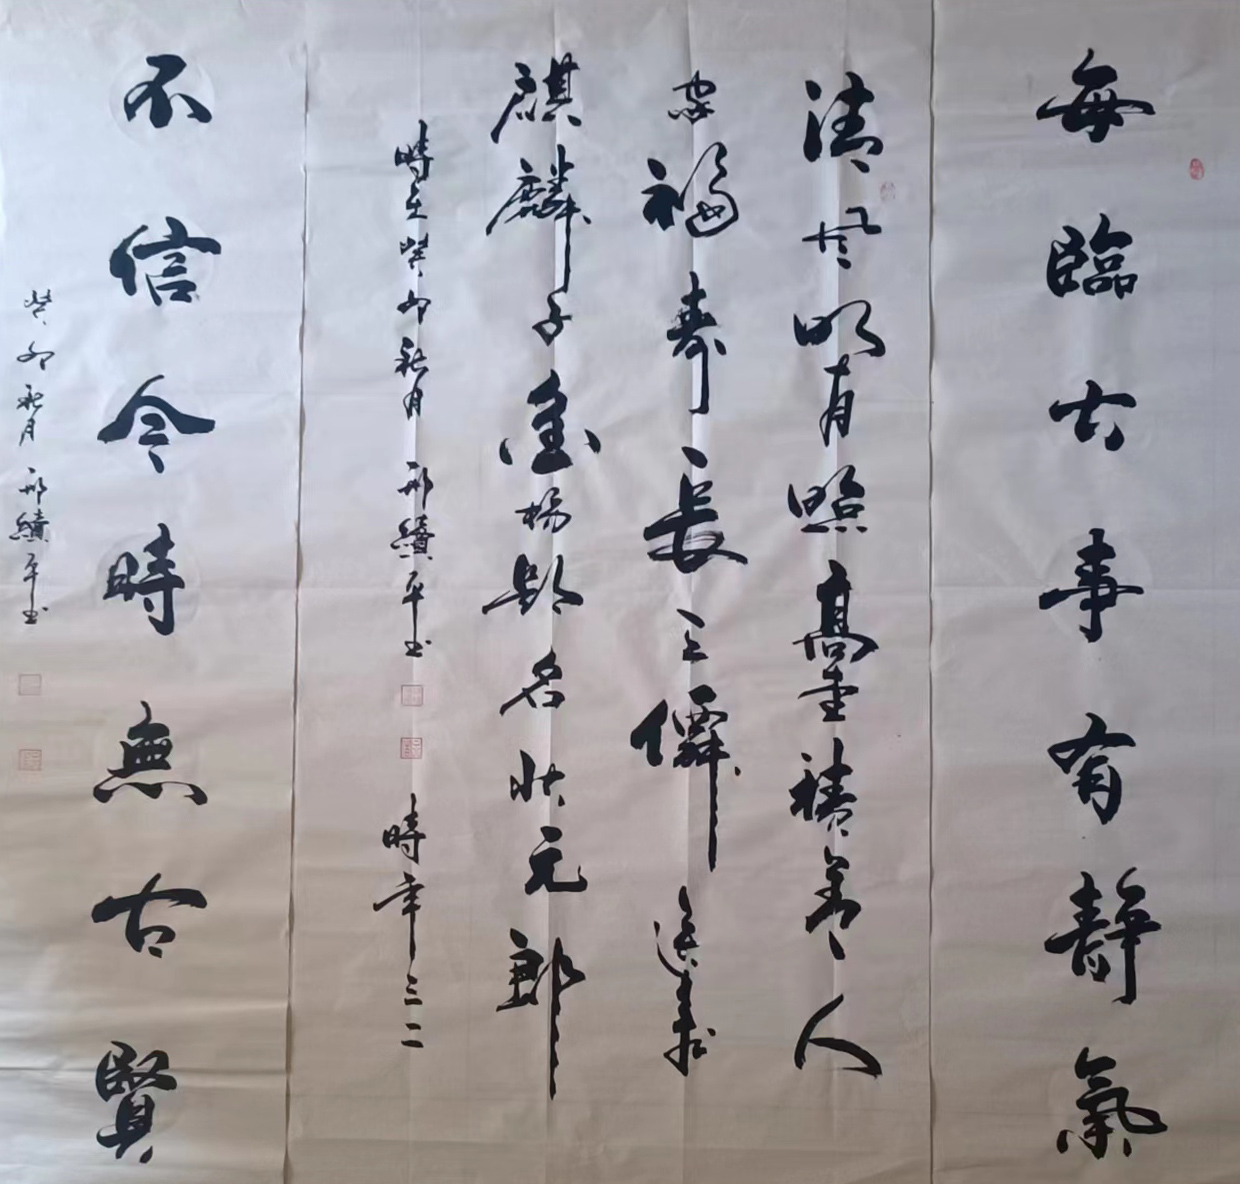 每臨大事有靜氣
清風明月照高堂積善人
家福寿長三僊送来
麒麟子金榜題名狀元郎
時在癸卯秋月邢續平書時年三二
不信今時無古賢
癸卯秋月邢續平書